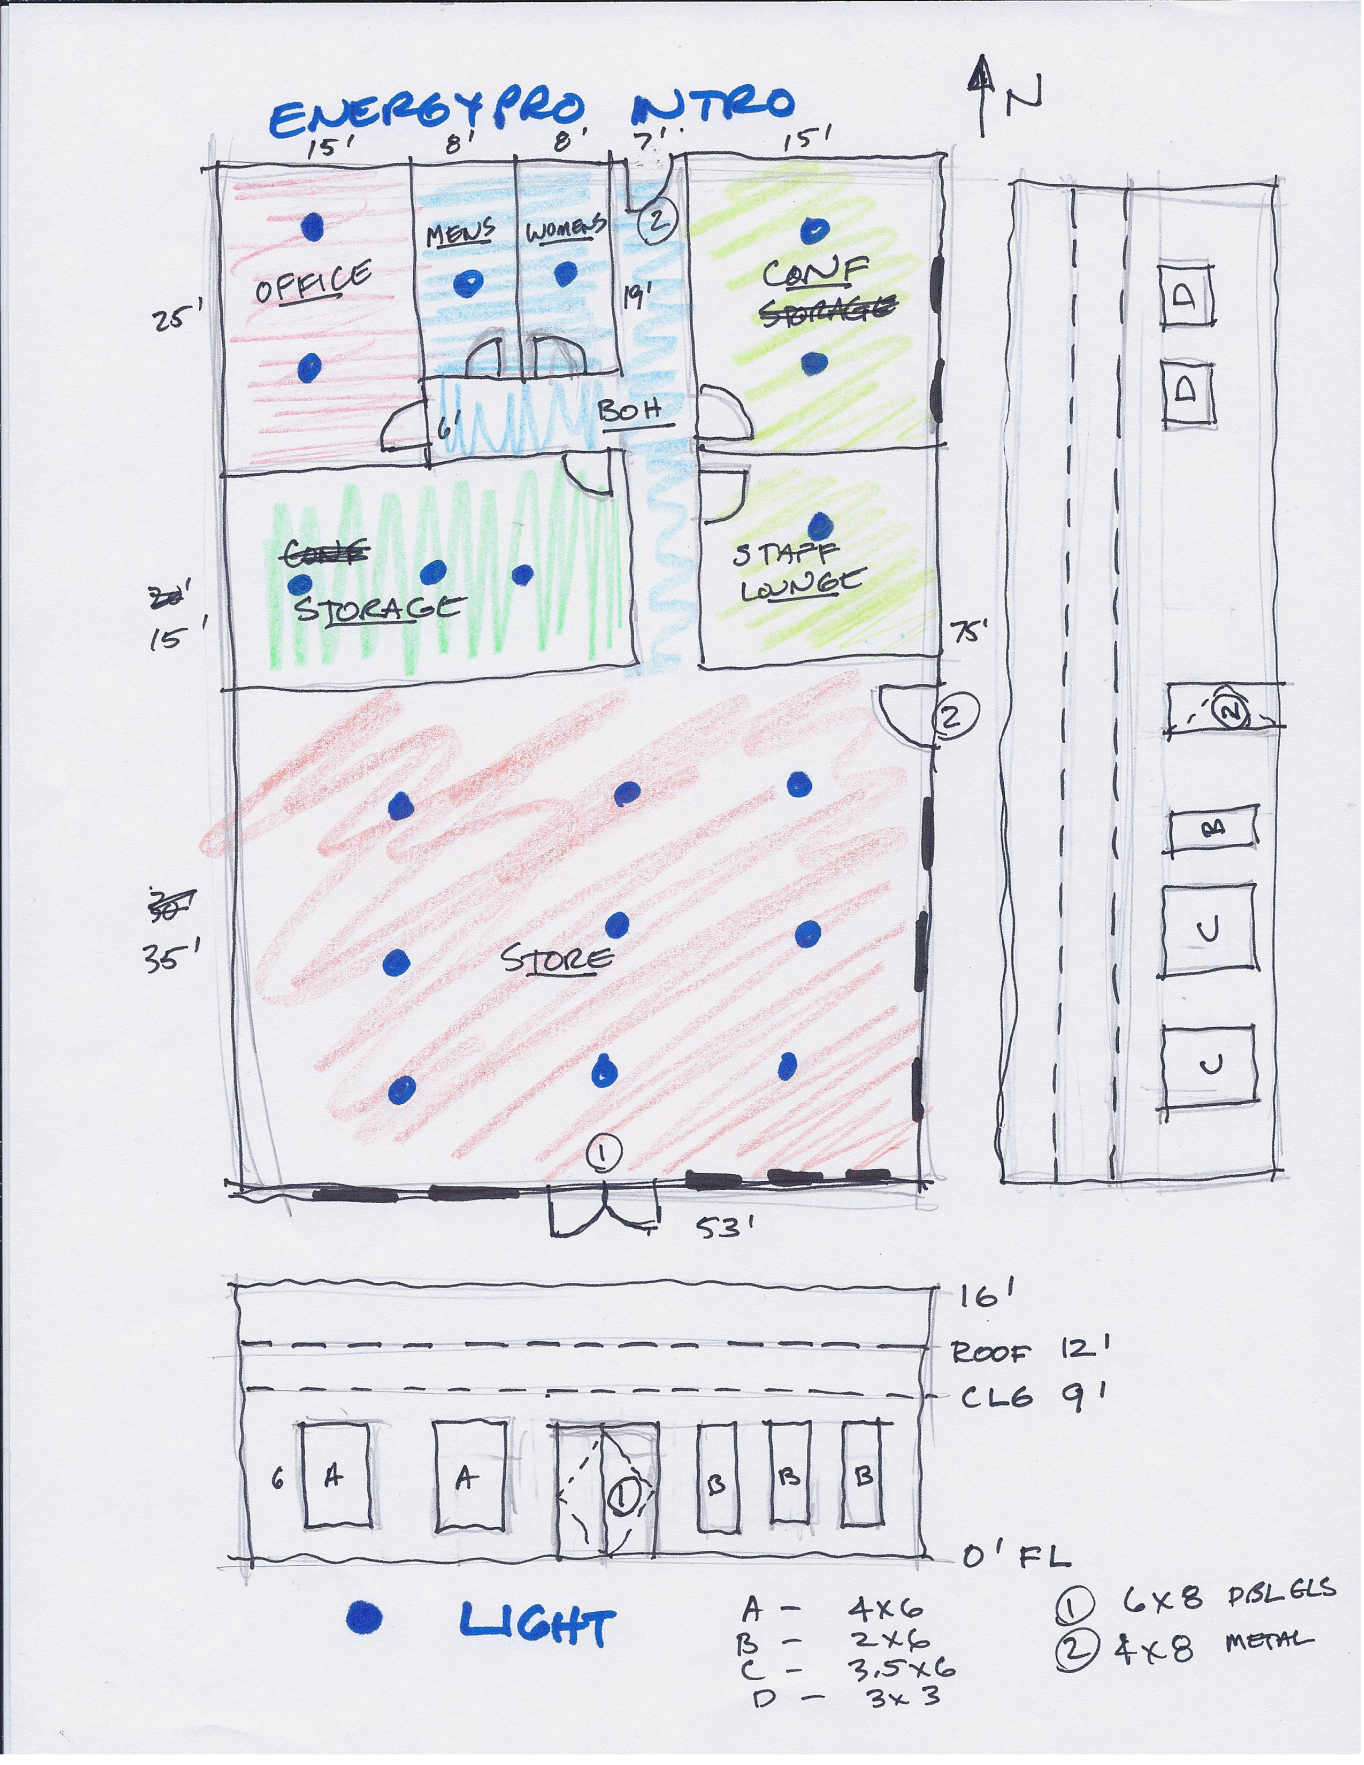 ENERGYPRO INTRO
N
15' 8' 8' 7' 15'
MENS WOMENS 2
OFFICE CONF
STORAGE
25' 19'
D
D
6' BOH
CONF
STORAGE
STAFF
LOUNGE
20'
15'
75'
2
2
B
30
35'
STORE
C
C
1
53'
16'
ROOF 12'
CLG 9'
6 A A 1 B B B
0' FL
LIGHT
A - 4x6
B - 2x6
C - 3.5x6
D - 3x3
1 6x8 DBL GLS
2 4x8 METAL